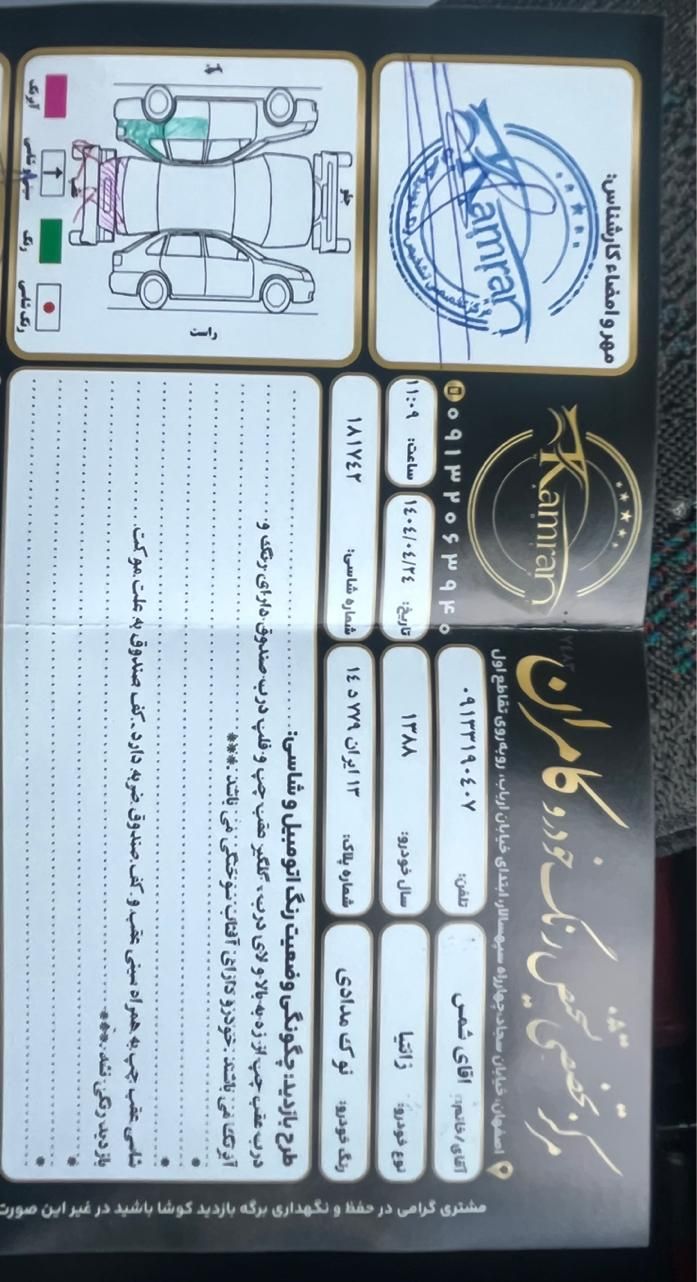 مرکز تخصصی تشخیص رنگ خودرو کامران
Kamran
اصفهان، خیابان سجاد، چهارراه سپهسالار، ابتدای خیابان ارباب، روبه‌روی تقاطع اول
۰۹۱۳۲۰۶۳۹۴۰
آقای/خانم: اقای شمس
تلفن: ۰۹۱۳۳۱۹۰۴۰۷
نوع خودرو: زانتیا
سال خودرو: ۱۳۸۸
تاریخ: ۱۴۰۴/۰۴/۲۴
ساعت: ۱۱:۰۹
رنگ خودرو: نوک مدادی
شماره پلاک: ۱۳ ایران ۷۷۹ د ۱۴
شماره شاسی: ۱۸۱۷۴۲
طرح بازدید: چگونگی وضعیت رنگ اتومبیل و شاسی:
درب عقب چپ از زه به بالا و لای درب، گلگیر عقب چپ و قلپ درب صندوق دارای رنگ و
آبرنگ می باشند. خودرو دارای آفتاب سوختگی می باشد. ***
شاسی عقب چپ به همراه سینی عقب و کف صندوق ضربه دارد. کف صندوق به علت موکت
بازدید رنگی نشد. ***
مهر و امضاء کارشناس:
Kamran
جلو
عقب
چپ
راست
آبرنگ
سینی و شاسی
رنگ
رنگ شاسی
مشتری گرامی در حفظ و نگهداری برگه بازدید کوشا باشید در غیر این صورت